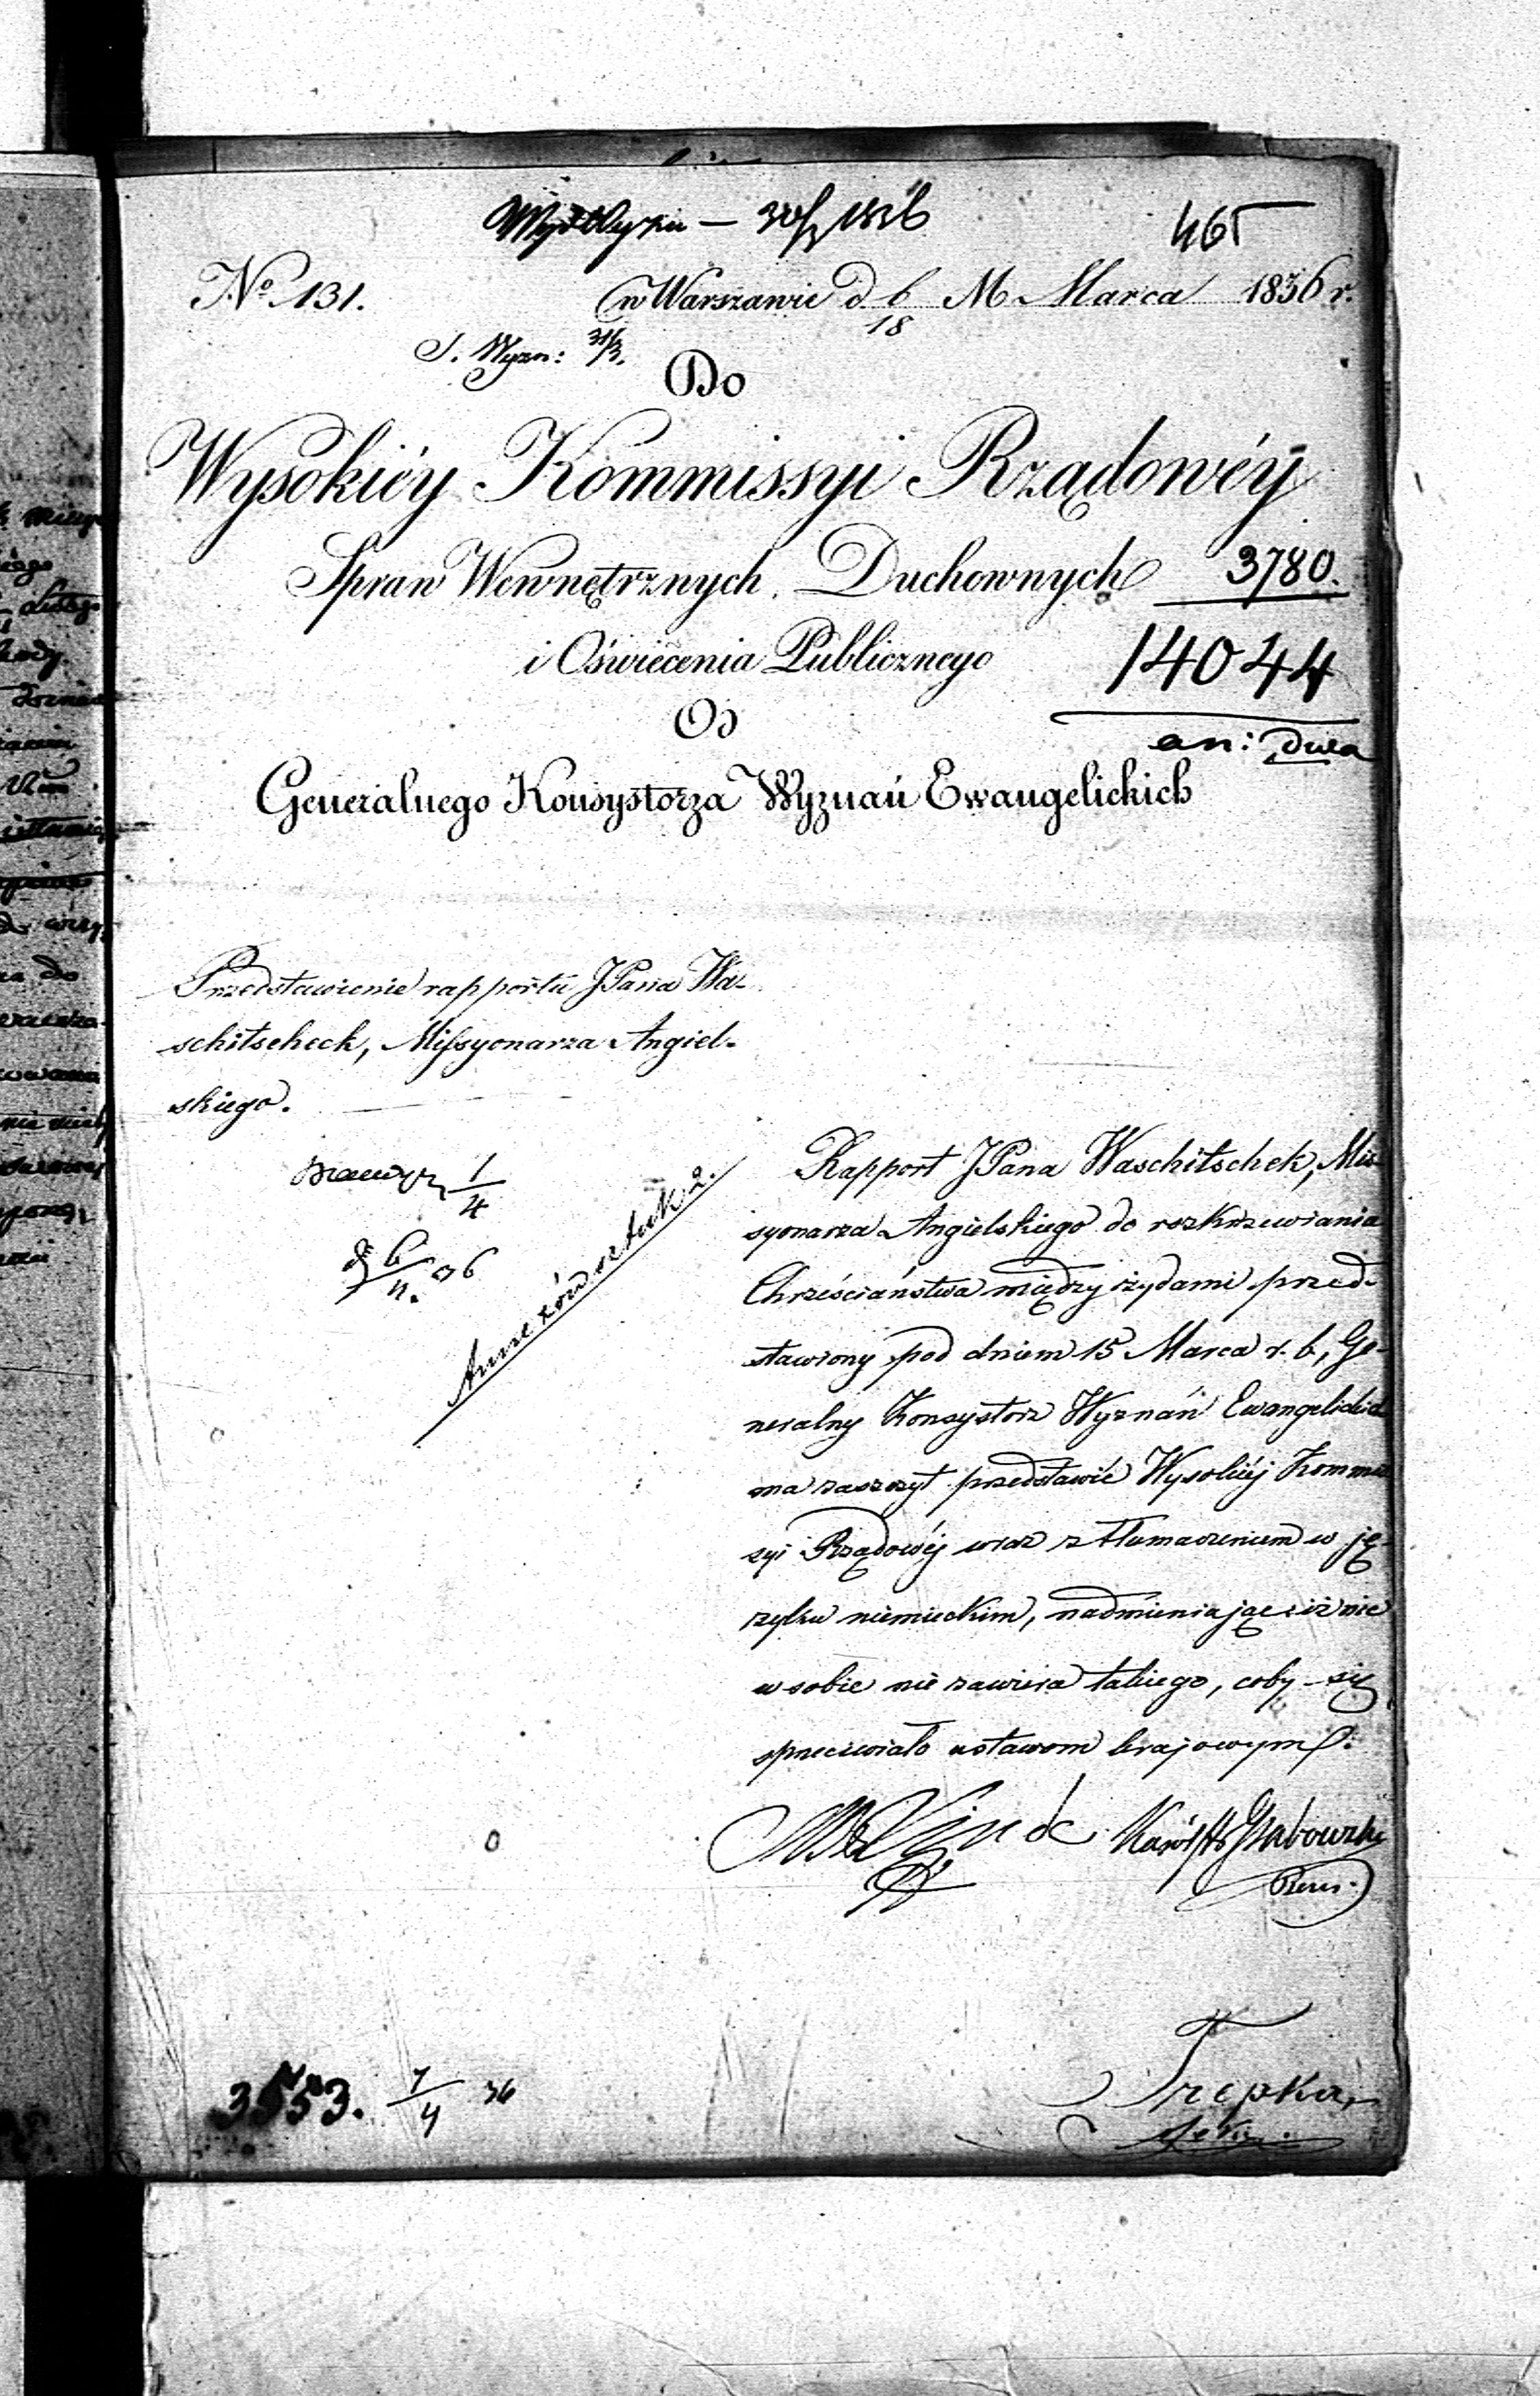 Wyd Wyzn — 30/3 1836
465
No. 131.
w Warszawie d 6/18 M Marca 1836 r.
S. Wyzn: 31/3.
Do
Wysokiéy Kommissyi Rządowéy
Spraw Wewnętrznych, Duchownych
3780.
i Oświecenia Publicznego
14044
an: dwa
Od
Generalnego Konsystorza Wyznań Ewangelickich
Przedstawienie rapportu JPana Wa-
schitscheck, Missyonarza Angiel-
skiego.
1/4
d 6/4. 36
Annexów sztuk 2.
Rapport JPana Waschitschek, Mis-
syonarza Angielskiego do rozkrzewiania
Chrześciaństwa między żydami przed-
stawiony pod dniem 15 Marca r. b, Ge-
neralny Konsystorz Wyznań Ewangelickich
ma zaszczyt przedstawić Wysokiéj Kommis
syi Rządowéj wraz z tłumaczeniem w ję-
zyku niemieckim, nadmieniając iż nic
w sobie nie zawiera takiego, coby się
sprzeciwiało ustawom krajowym.
Linde
Karól Grabowski
Prezes
3553. 7/4 36
Trepka
Sekr.